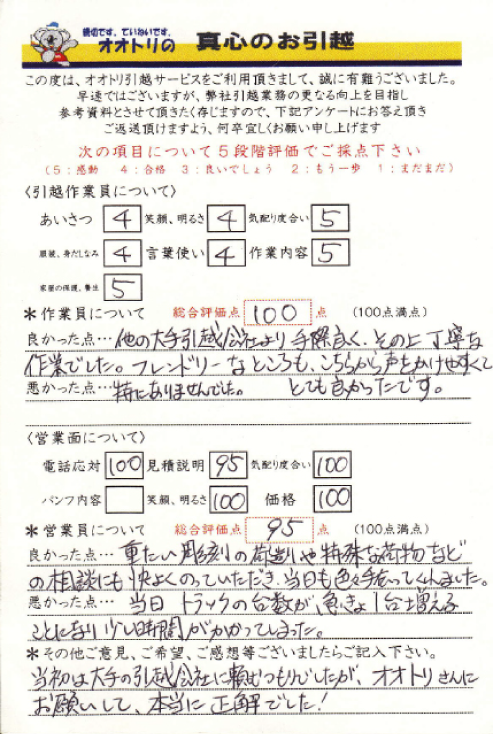 親切です、ていねいです。
オオトリの 真心のお引越
この度は、オオトリ引越サービスをご利用頂きまして、誠に有難うございました。
早速ではございますが、弊社引越業務の更なる向上を目指し
参考資料とさせて頂きたく存じますので、下記アンケートにお答え頂き
ご返送頂けますよう、何卒宜しくお願い申し上げます
次の項目について5段階評価でご採点下さい
(5:感動 4:合格 3:良いでしょう 2:もう一歩 1:まだまだ)
〈引越作業員について〉
あいさつ 4 笑顔、明るさ 4 気配り度合い 5
服装、身だしなみ 4 言葉使い 4 作業内容 5
家屋の保護、養生 5
*作業員について 総合評価点 100 点 (100点満点)
良かった点… 他の大手引越会社より手際良く、その上丁寧な
作業でした。フレンドリーなところも、こちらから声をかけやすくて
悪かった点… 特にありませんでした。 とても良かったです。
〈営業面について〉
電話応対 100 見積説明 95 気配り度合い 100
パンフ内容 笑顔、明るさ 100 価格 100
*営業員について 総合評価点 95 点 (100点満点)
良かった点… 重たい彫刻の荷造りや特殊な荷物など
の相談にも快よくのっていただき、当日も色々手伝ってくれました。
悪かった点… 当日 トラックの台数が、急きょ1台増える
ことになり少し時間がかかってしまった。
*その他ご意見、ご希望、ご感想等ございましたらご記入下さい。
当初は大手の引越会社に頼むつもりでしたが、オオトリさんに
お願いして、本当に正解でした!